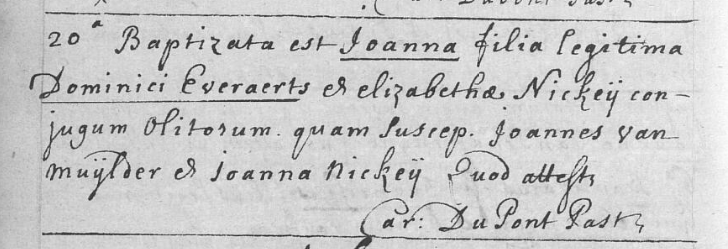 20ᵃ Baptizata est Joanna filia legitima
Dominici Everaerts & elizabethæ Nickeÿ con-
jugum olitorum. quam suscep. Joannes van
muÿlder & Joanna Nickeÿ Quod attest
Car: DuPont Past